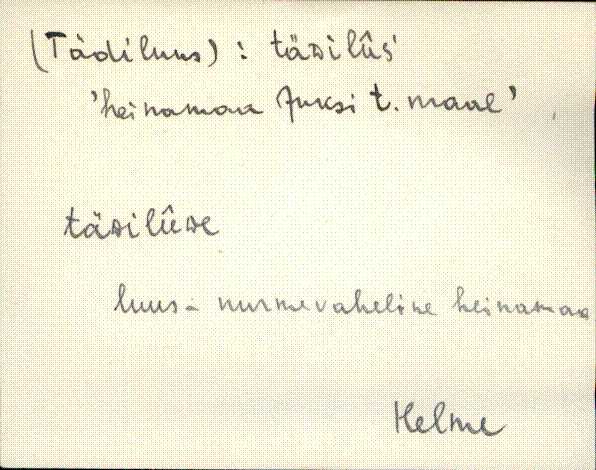 (Tädiluus) : täᴅilūs
'heinamaa Juksi t. maal'
täᴅilūᴅe
luus - nurmevaheline heinamaa
Helme